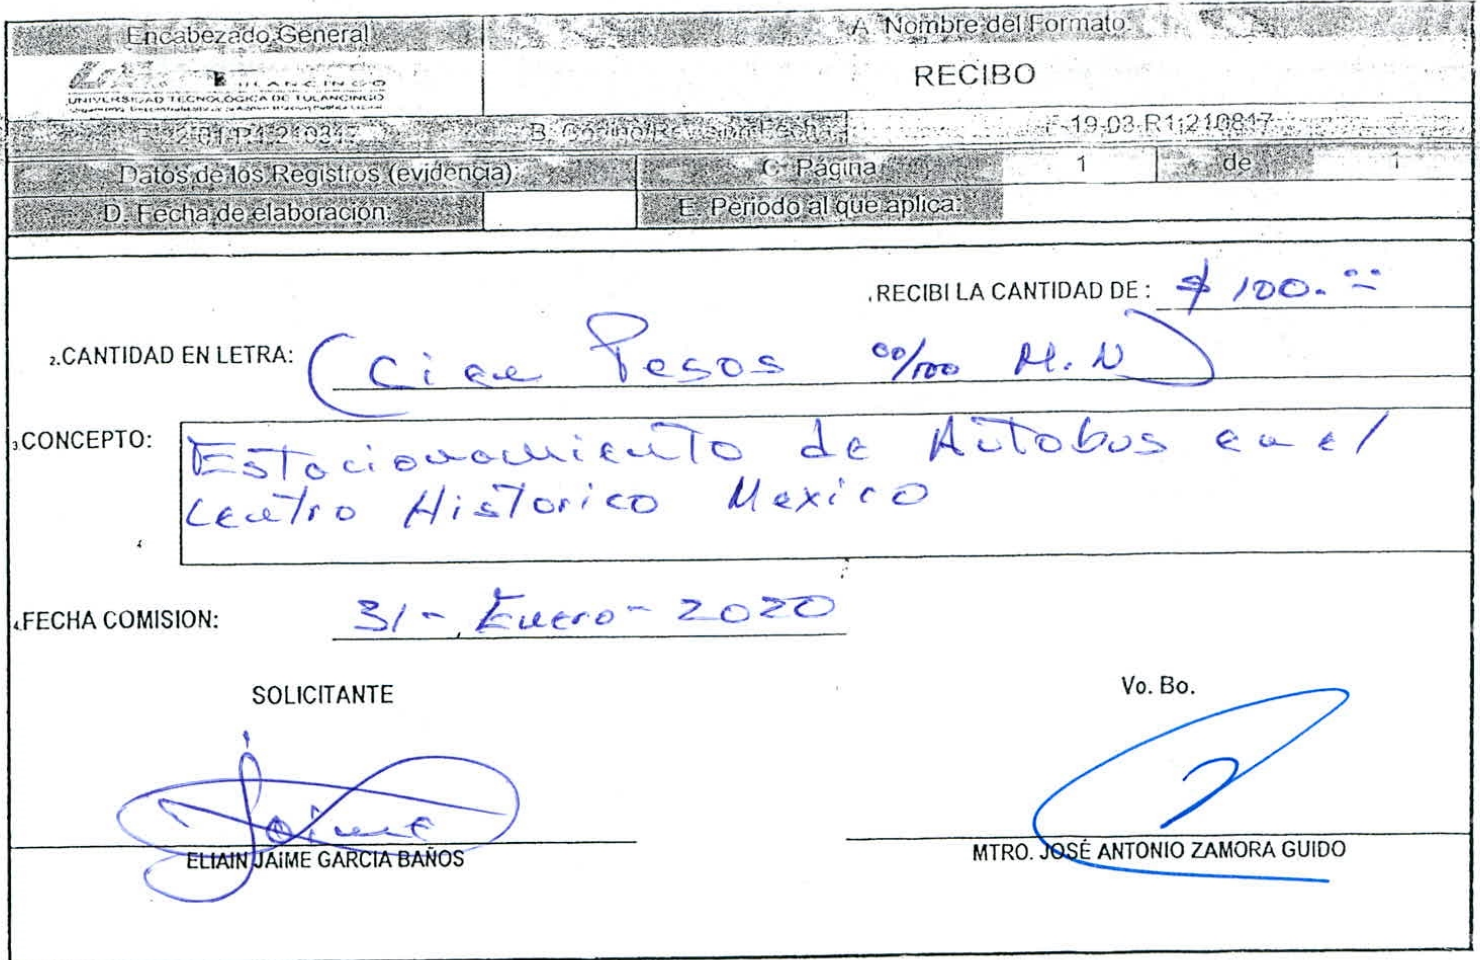 Encabezado General
A. Nombre del Formato:
TULANCINGO
UNIVERSIDAD TECNOLÓGICA DE TULANCINGO
RECIBO
B. Código/Revisión Fecha: F-19-03-R1;210817
Datos de los Registros (evidencia) C. Página 1 de 1
D. Fecha de elaboración: E. Periodo al que aplica:
1.RECIBI LA CANTIDAD DE : $ 100.00
2.CANTIDAD EN LETRA: (Cien Pesos 00/100 M.N)
3.CONCEPTO: Estacionamiento de Autobus en el
Centro Historico Mexico
4.FECHA COMISION: 31 - Enero - 2020
SOLICITANTE Vo. Bo.
Jaime
ELIAIN JAIME GARCIA BAÑOS MTRO. JOSÉ ANTONIO ZAMORA GUIDO